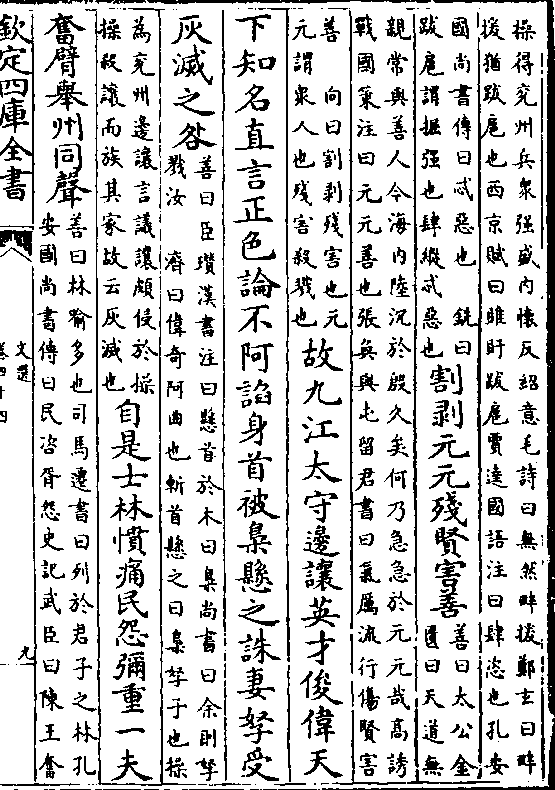 操得兖州兵衆强盛内懷反紹意毛詩曰無然畔援鄭玄曰畔
援猶跋扈也西京賦曰睢盱跋扈賈逵國語注曰肆恣也孔安
國尚書傳曰忒惡也 銑曰
跋扈謂掘强也肆縱忒惡也
割剥元元殘賢害善
善曰太公金
匱曰天道無
親常與善人今海内陸沉於殷久矣何乃急急於元元哉高誘
戰國策注曰元元善也張奐與屯留君書曰氣厲流行傷賢害
善 向曰割剥殘害也元
元謂衆人也殘害殺戮也
故九江太守邊讓英才俊偉天
下知名直言正色論不阿諂身首被梟懸之誅妻孥受
灰滅之咎
善曰臣瓚漢書注曰懸首於木曰梟尚書曰余則孥
戮汝 濟曰偉奇阿曲也斬首懸之曰梟孥子也操
為兖州邊讓言議讓頗侵於操
操殺讓而族其家故云灰滅也
自是士林憤痛民怨彌重一夫
奮臂舉州同聲
善曰林喻多也司馬遷書曰列於君子之林孔
安國尚書傳曰民咨胥怨史記武臣曰陳王奮
欽定四庫全書
文選
卷四十四
九